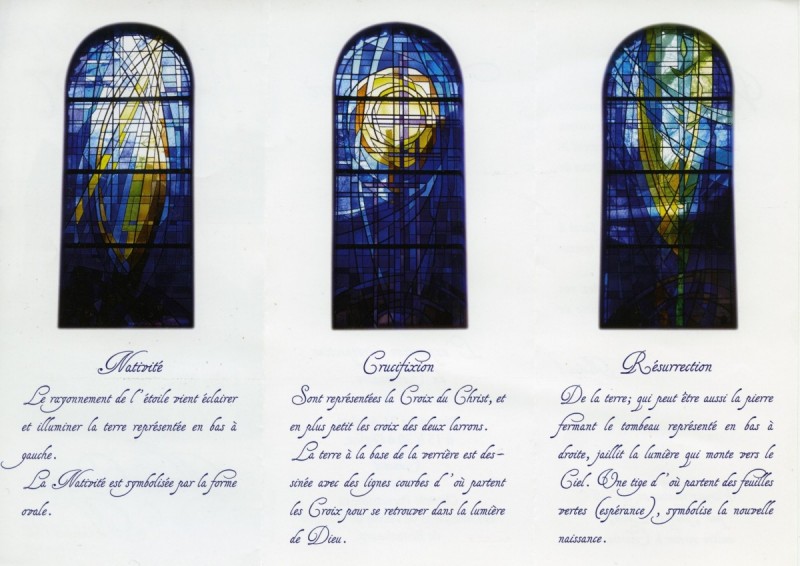 Nativité
Le rayonnement de l'étoile vient éclairer
et illuminer la terre représentée en bas à
gauche.
La Nativité est symbolisée par la forme
ovale.
Crucifixion
Sont représentées la Croix du Christ, et
en plus petit les croix des deux larrons.
La terre à la base de la verrière est des-
sinée avec des lignes courbes d'où partent
les Croix pour se retrouver dans la lumière
de Dieu.
Résurrection
De la terre; qui peut être aussi la pierre
fermant le tombeau représenté en bas à
droite, jaillit la lumière qui monte vers le
Ciel. Une tige d'où partent des feuilles
vertes (espérance), symbolise la nouvelle
naissance.